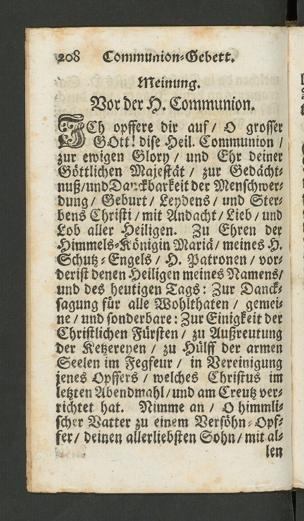 208 Communion-Gebett.
Meinung.
Vor der H. Communion.
ICh opffere dir auf / O grosser
GOtt! dise Heil. Communion /
zur ewigen Glory / und Ehr deiner
Göttlichen Majestät / zur Gedächt-
nuß / und Danckbarkeit der Menschwer-
dung / Geburt / Leydens / und Ster-
bens Christi / mit Andacht / Lieb / und
Lob aller Heiligen. Zu Ehren der
Himmels-Königin Mariä / meines H.
Schutz-Engels / H. Patronen / vor-
derist denen Heiligen meines Namens /
und des heutigen Tags: Zur Danck-
sagung für alle Wohlthaten / gemei-
ne / und sonderbare: Zur Einigkeit der
Christlichen Fürsten / zu Außreutung
der Ketzereyen / zu Hülff der armen
Seelen im Fegfeur / in Vereinigung
jenes Opffers / welches Christus im
letzten Abendmahl / und am Creutz ver-
richtet hat. Nimme an / O himmli-
scher Vatter zu einem Versöhn-Opf-
fer / deinen allerliebsten Sohn / mit al-
len